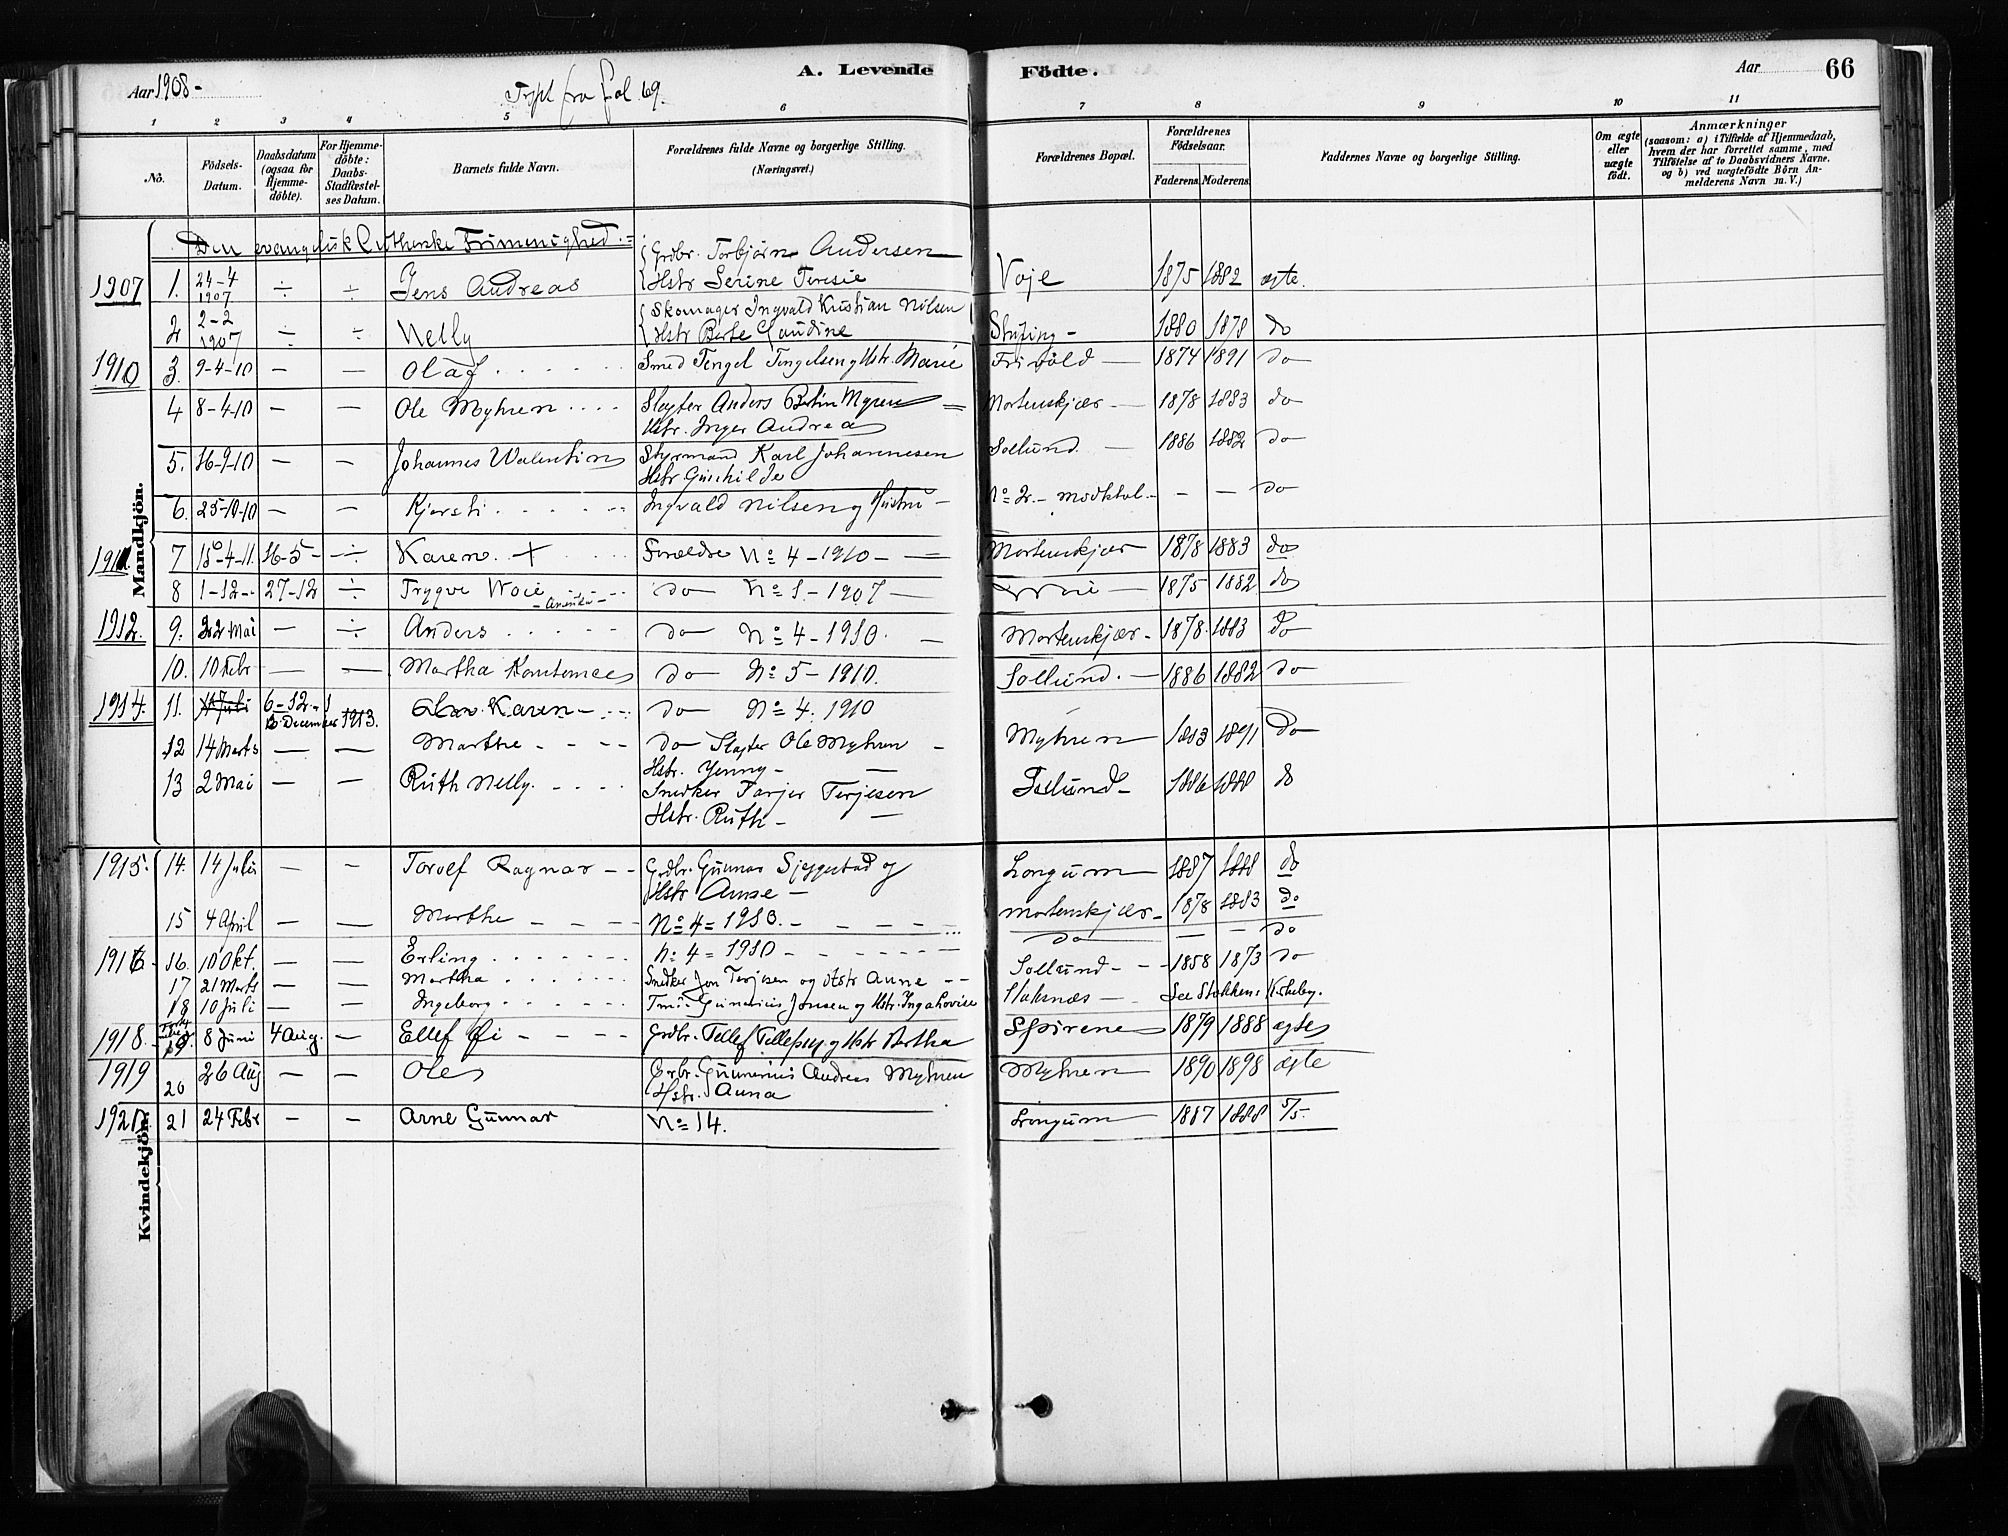 Aar 1908-
A. Levende Födte.
Aar 66
fra fol. 69.
1 2 3 4 5 6 7 8 9 10 11
No.
Födsels-Datum.
Daabsdatum (ogsaa for Hjemme-döbte).
For Hjemme-döbte: Daabs-Stadfæstel-ses Datum.
Barnets fulde Navn.
Forældrenes fulde Navne og borgerlige Stilling.
(Næringsvei.)
Forældrenes Bopæl.
Forældrenes Födselsaar.
Faderens. Moderens.
Faddernes Navne og borgerlige Stilling.
Om ægte eller uægte födt.
Anmærkninger
(saasom: a) i Tilfælde af Hjemmedaab, hvem der har forrettet samme, med Tilföielse af to Daabsvidners Navne. og b) ved uægtefödte Börn An-melderens Navn m. V.)
Mandkjön.
Kvindekjön.
Den evangelisk Lutherske Frimenighed.
Grdbr. Torbjørn Andersen
1907 1. 24-4 1907 ÷ ÷ Jens Andreas Hstr Serine Teresie Voje 1875 1882 ægte.
Skomager Ingvald Kristian Nilsen
2 2-2 1907 ÷ ÷ Nelly Hstr Berte Gaudine 1880 1878 do
1910 3. 9-4-10 — — Olaf Smed Tengel Tengelsen og Hstr. Marie Frivold 1874 1891 do
4 8-4-10 — — Ole Myhren Slagter Anders Bertin Myren Mortenskjær 1878 1883 do
Hstr. Inger Andrea
5. 16-9-10 — — Johannes Walentin Styrmand Karl Johannesen Sollund 1886 1882 do
Hstr Gunhilde
6. 25-10-10 — — Kjersti Ingvald Nilsen og Hustru No 2. - — — do
1911 7 15-4-11. 16-5- ÷ Karen + Forældre No 4-1910- Mortenskjær 1878 1883 do
8 1-12- 27-12 ÷ Trygve Woie do No 1.-1907 1875 1882 do
-Amerika-
1912. 9. 22 Mai — ÷ Anders do No 4-1910. Mortenskjær 1878 1883 do
10. 10 Febr — — Martha do No 5-1910. Sollund. 1886 1882 do
1914. 11. 6-12- Karen do No 4. 1910
December 1913.
12 14 Marts — — Marthe do Slagter Ole Myhren Myhren 1883 1891 do
Hstr. Jenny
13 2 Mai — — Ruth Nelly. Snedker Tarjer Terjesen Sollund 1886 1888 do
Hstr. Ruth
1915. 14. 14 Juli — — Torolf Ragnar Grdbr. Gunnar og Longum 1887 1888 do
Hstr Anne
15 4 April — — Marthe No 4=1910. Mortenskjær 1878 1883 do
1916 16. 10 Okt. — — Erling No 4=1910 do — — do
17 21 Marts — — Martha Snedker Jon Terjesen og Hstr Anne Sollund 1858 1873 do
18 10 Juli — — Ingeborg Gunerius Jonsen og Hstr. Inga Lovise Staksnæs See Stokkens Kirkebg.
1918. 19. 8 Juni 4 Aug. — Ellef Øi Grdbr. Tellef Tellefsen og Hstr Bertha Spirene 1879 1888 ægte
1919 20 26 Aug — — Ole Grbr. Gunerius Andreas Myhren Myhren 1890 1898 ægte
Hstr. Anna
1921 21 24 Febr — — Arne Gunnar No 14. Longum 1887 1888